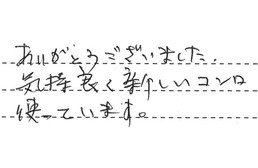 ありがとうございました。
気持良く新しいコンロ
使っています。